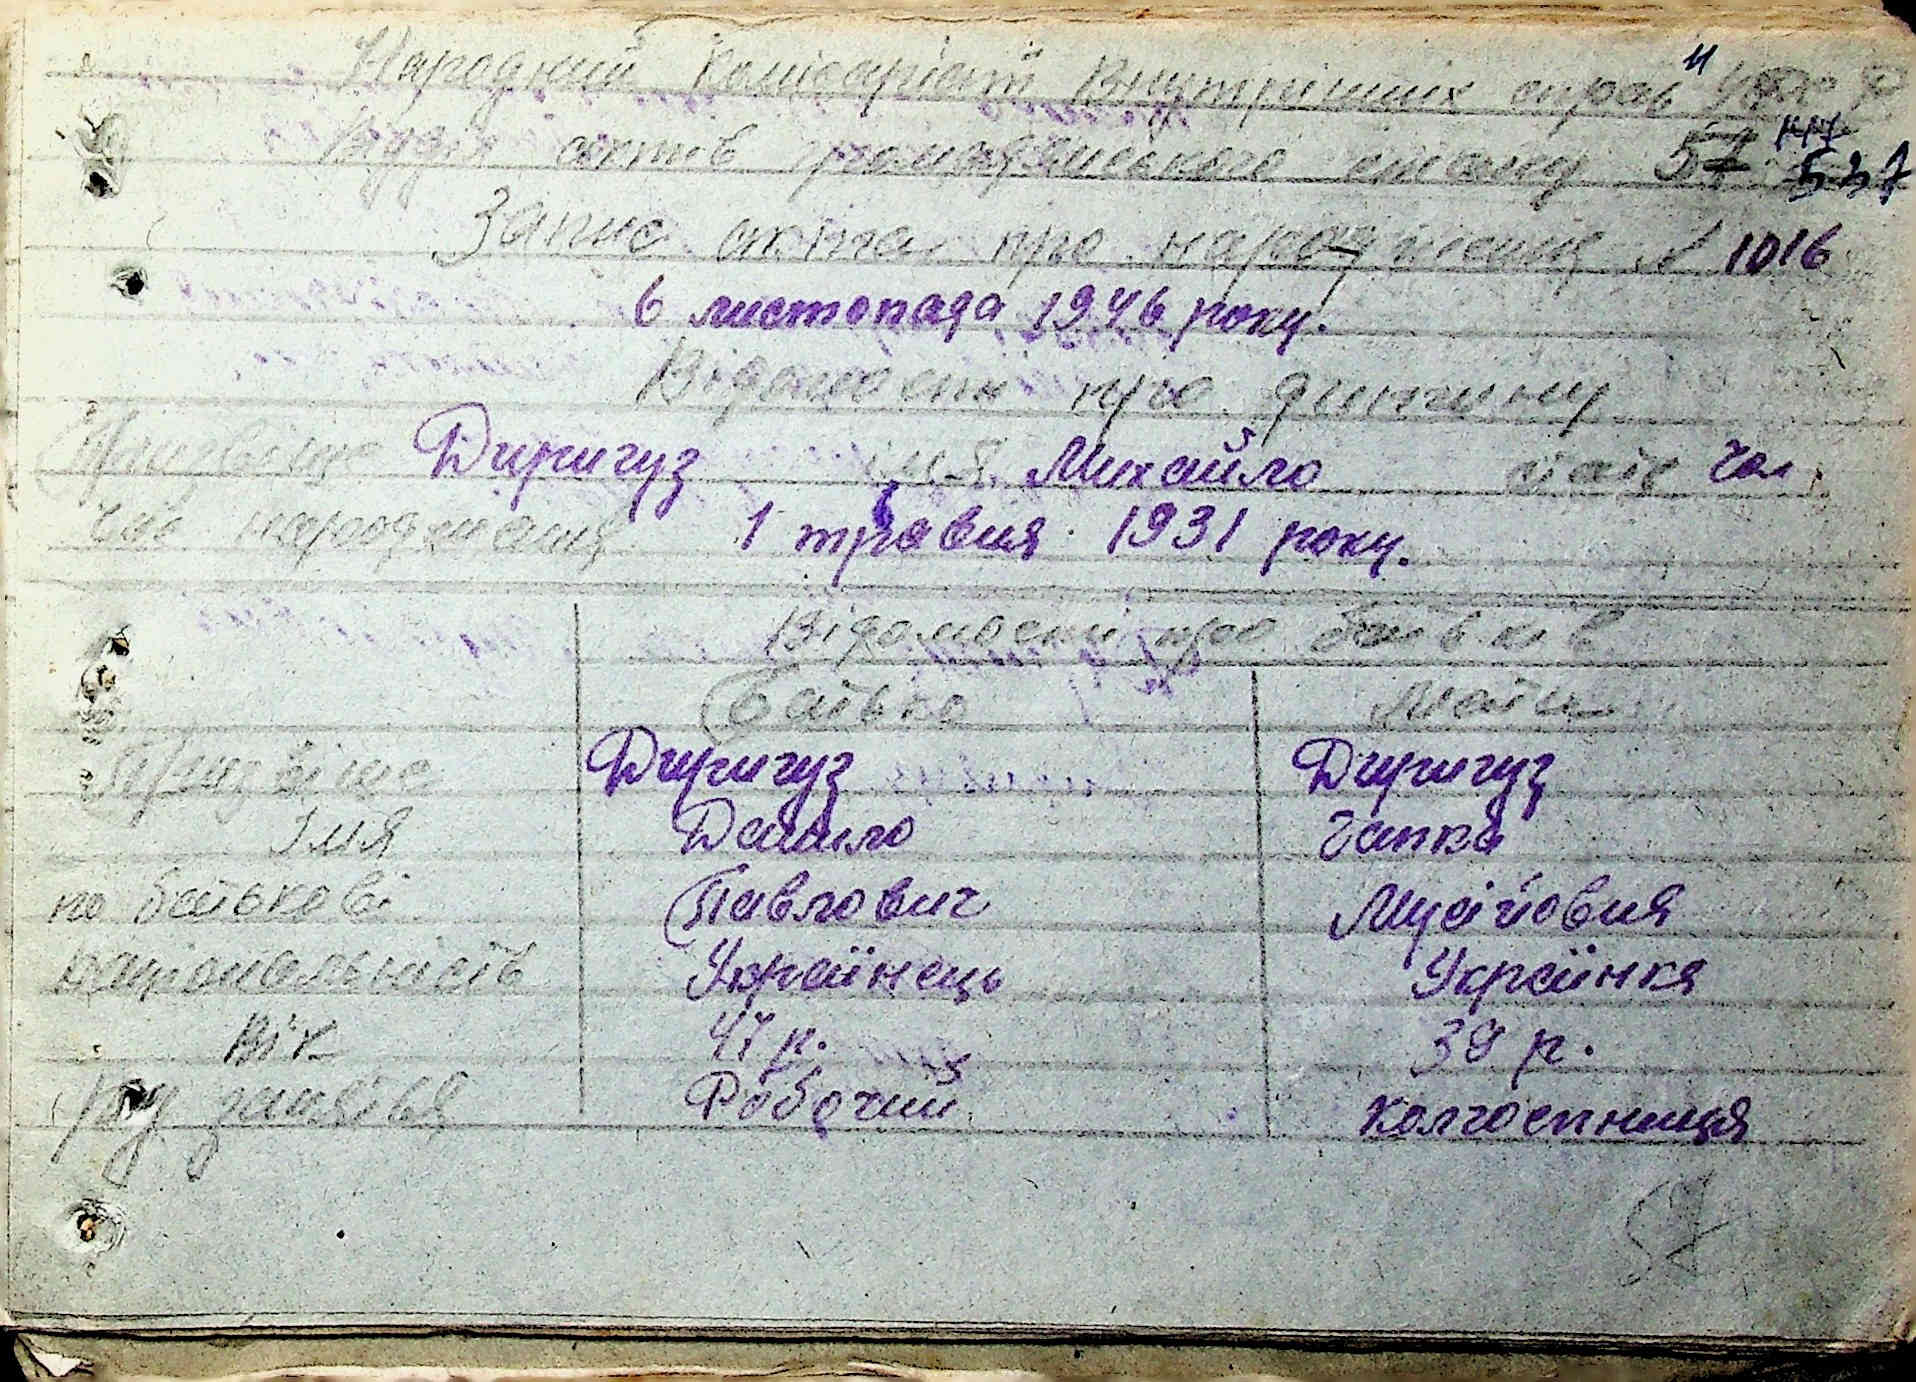 Народний Комісаріат Внутрішніх справ УРСР
Відділ актів громадянського стану 57 537
Запис акта про народження № 1016
6 листопада 1946 року.
Відомості про дитину
Прізвище Диригуз імя Михайло стать чол.
час народження 1 травня 1931 року.
Відомості про батьків
Батько Мати
Прізвище Диригуз Диригуз
Імя Данило Гапка
по батькові Павлович Мусійовня
національність Українець Українка
Вік 47 р. 39 р.
рід заняття Робочий Колгоспниця
57